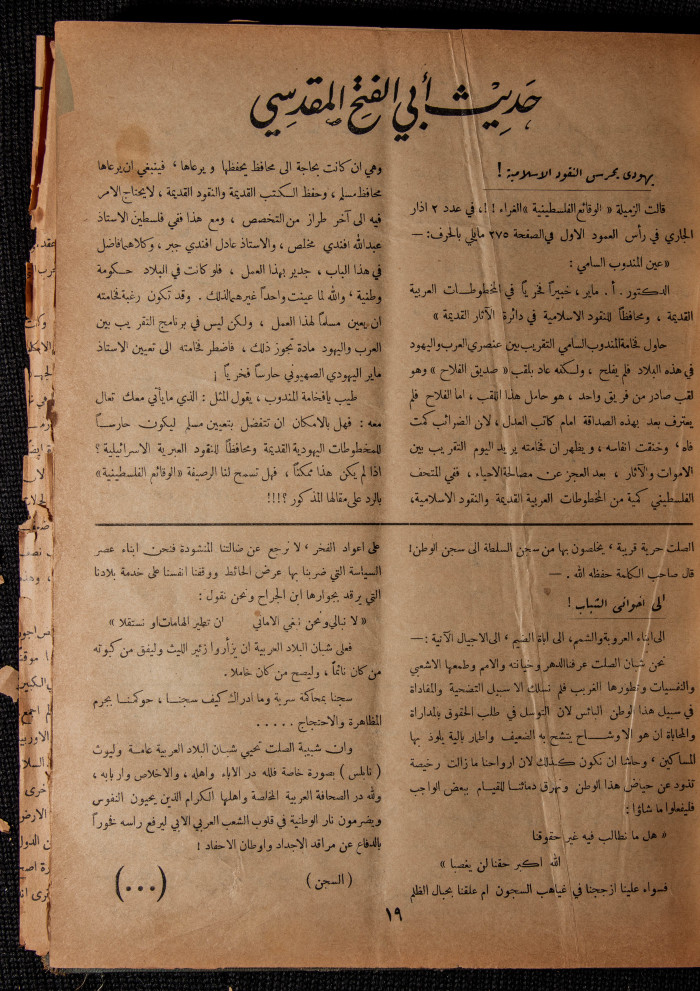 حديث أبي الفتح المقدسي
يهودي يحرس النقود الاسلامية !
قالت الزميلة «الوقائع الفلسطينية» الغراء !!، في عدد ٢ اذار
الجاري في رأس العمود الاول في الصفحة ٢٧٥ مايلي بالحرف: —
«عين المندوب السامي :
الدكتور . أ . ماير ، خبيراً فخرياً في المخطوطات العربية
القديمة ، ومحافظاً للنقود الاسلامية في دائرة الآثار القديمة »
حاول فخامة المندوب السامي التقريب بين عنصري العرب واليهود
في هذه البلاد فلم يفلح ، ولكنه عاد بلقب « صديق الفلاح » وهو
لقب صادر من فريق واحد ، هو حامل هذا اللقب ، اما الفلاح فلم
يعترف بعد بهذه الصداقة امام كاتب العدل ، لان الضرائب كمت
فاه ، وخنقت انفاسه ، ويظهر ان فخامته يريد اليوم التقريب بين
الاموات والآثار ، بعد العجز عن مصالحة الاحياء ، ففي المتحف
الفلسطيني كمية من المخطوطات العربية القديمة والنقود الاسلامية،
وهي ان كانت بحاجة الى محافظ يحفظها و يرعاها ، فينبغي ان يرعاها
محافظ مسلم ، وحفظ الكتب القديمة والنقود القديمة ، لايحتاج الامر
فيه الى آخر طراز من التخصص ، ومع هذا ففي فلسطين الاستاذ
عبدالله افندي مخلص ، والاستاذ عادل افندي جبر ، وكلاهما فاضل
في هذا الباب ، جدير بهذا العمل ، فلو كانت في البلاد حكومة
وطنية ، والله لما عينت واحداً غيرهما لذلك . وقد تكون رغبة فخامته
ان يعين مسلماً لهذا العمل ، ولكن ليس في برنامج التقريب بين
العرب واليهود مادة تجوز ذلك ، فاضطر فخامته الى تعيين الاستاذ
ماير اليهودي الصهيوني حارساً فخرياً ؛
طيب يافخامة المندوب ، يقول المثل : الذي مايأتي معك تعال
معه : فهل بالامكان ان تتفضل بتعيين مسلم ليكون حارساً
للمخطوطات اليهودية القديمة ومحافظاً للنقود العبرية الاسرائيلية ؟
اذا لم يكن هذا ممكناً ، فهل تسمح لنا الرصيفة «الوقائع الفلسطينية»
بالرد على مقالها المذكور ؟!!!
الصلت حرية قريبة ، يخلصون بها من سجن السلطة الى سجن الوطن!
قال صاحب الكلمة حفظه الله . —
الى اخواني الشباب !
الى ابناء العروبة والشمم، الى اباة الضيم ، الى الاجيال الآتية : —
نحن شبان الصلت عرفنا الدهر وخياناته والامم وطمعها الاشعبي
والنفسيات وتطورها الغريب فلم نسلك الا سبيل التضحية والمفاداة
في سبيل هذا الوطن البائس لان التوسل في طلب الحقوق بالمداراة
والمحاباة ان هو الا وشاح يتشح به الضعيف واطمار بالية يلوذ بها
المساكين ، وحاشا ان نكون كذلك لان ارواحنا ما زالت رخيصة
تذود عن حياض هذا الوطن ونهرق دمائنا للقيام ببعض الواجب
فليفعلوا ما شاؤا :
« هل ما نطالب فيه غير حقوقنا
الله اكبر حقنا لن يغصبا »
فسواء علينا ازججنا في غياهب السجون ام علقنا بحبال الظلم
على اعواد الفخر ، لا نرجع عن ضالتنا المنشودة فنحن ابناء عصر
السياسة التي ضربنا بها عرض الحائط ووقفنا انفسنا على خدمة بلادنا
التي يرقد بجوارها ابن الجراح ونحن نقول :
« لا نبالي ونحن نبغي الاماني ان تطير الهامات او نستقلا »
فعلى شبان البلاد العربية ان يزأروا زئير الليث وليفق من كبوته
من كان نائماً ، وليصح من كان خاملا .
سجنا بمحاكمة سرية وما ادراك كيف سجنا ، حوكمنا بجرم
المظاهرة والاحتجاج . . . . .
وان شبيبة الصلت تحيي شبان البلاد العربية عامة وليوث
( نابلس ) بصورة خاصة فلله در الاباء واهله ، والاخلاص واربابه ،
ولله در الصحافة العربية المخلصة واهلها الكرام الذين يحيون النفوس
ويضرمون نار الوطنية في قلوب الشعب العربي الابي ليرفع راسه فخوراً
بالدفاع عن مراقد الاجداد واوطان الاحفاد !
( السجن )
(...)
١٩